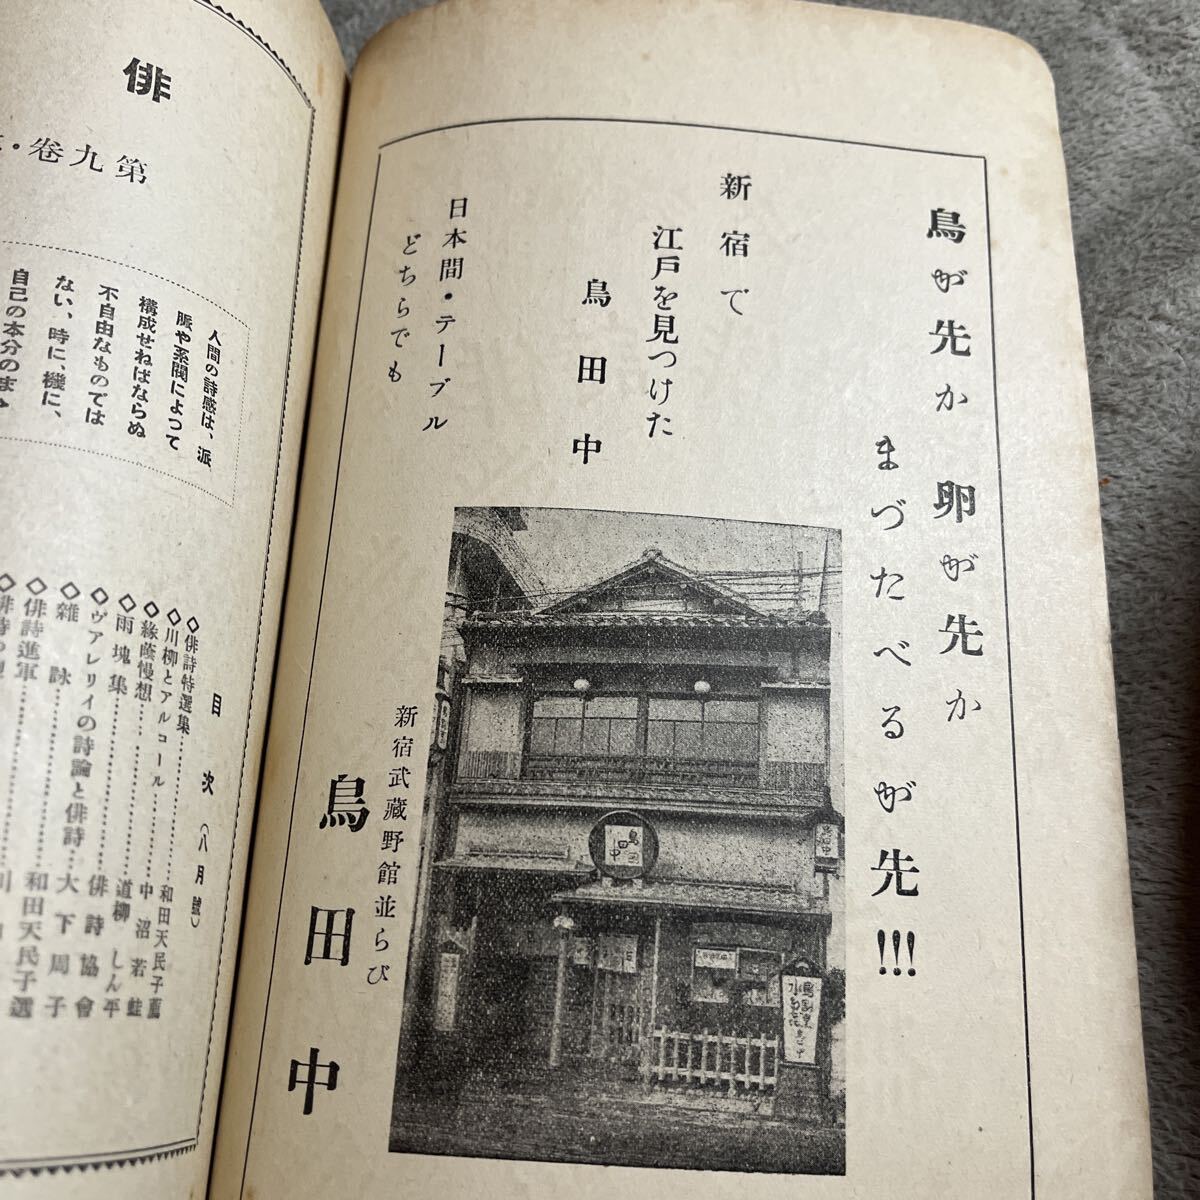 鳥が先か 卵が先か
まづたべるが先!!!
新宿で
江戸を見つけた
鳥田中
日本間・テーブル
どちらでも
新宿武蔵野館並らび
鳥田中
鳥田中
俳
第九卷・
人間の詩感は、派
脈や系閥によつて
構成せねばならぬ
不自由なものでは
ない、時に、機に、
自己の本分のまゝ
目次(八月號)
◇俳詩特選集………和田天民子薦
◇川柳とアルコール………中沼若蛙
◇緣蔭慢想………道柳しん平
◇雨塊集………俳詩協會
◇ヴアレリイの詩論と俳詩…大下周子
◇雜詠………和田天民子選
◇俳詩進軍………川